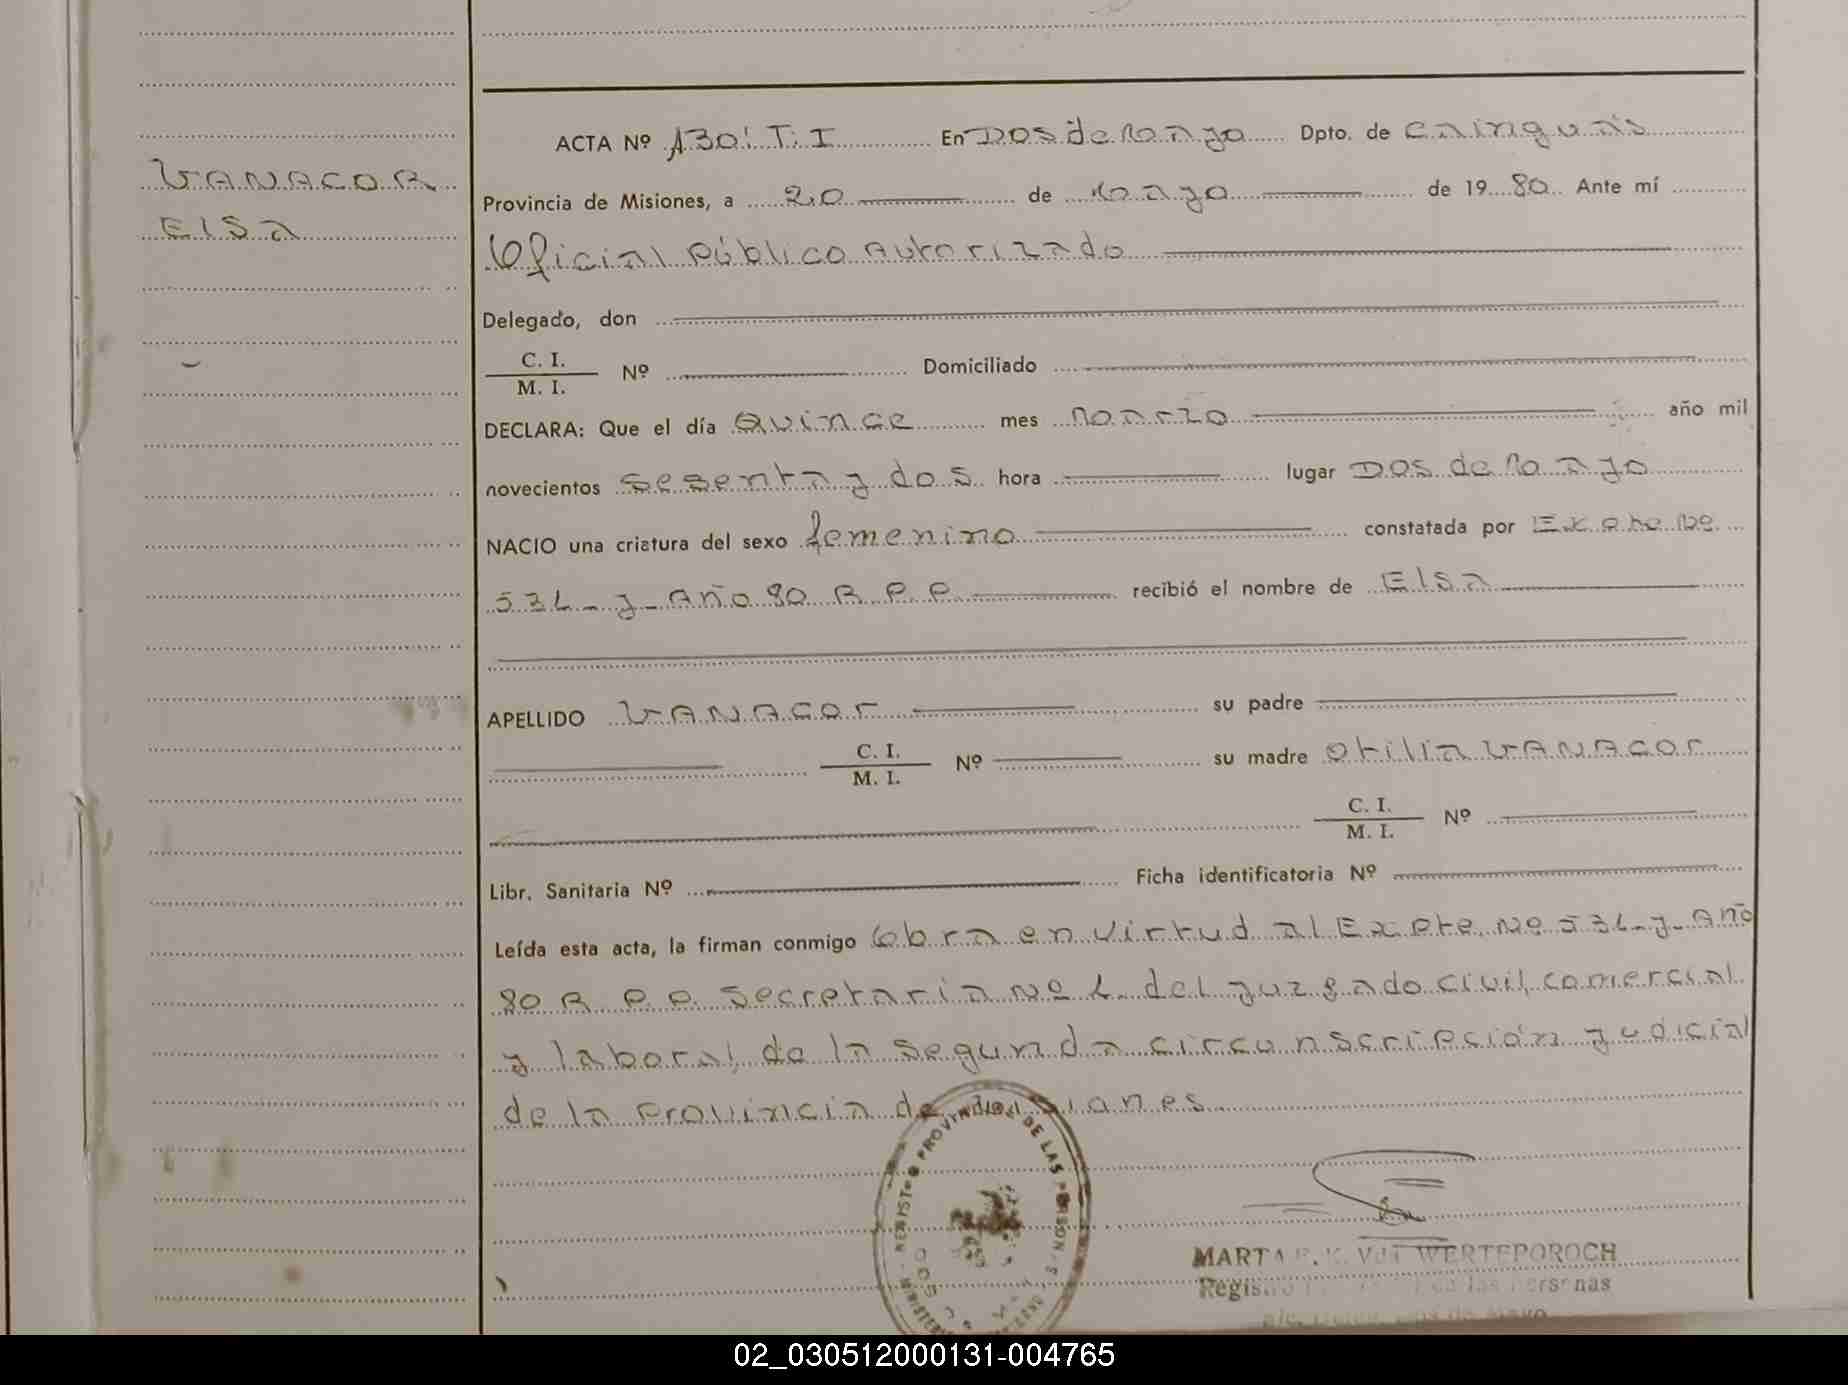 VANACOR
Elsa
ACTA Nº 130: T: I En Dos de Mayo Dpto. de Cainguás
Provincia de Misiones, a 20 de Mayo de 1980 Ante mí
Oficial Público Autorizado
Delegado, don
C. I.
M. I. Nº Domiciliado
DECLARA: Que el día Quince mes Marzo año mil
novecientos sesenta y dos hora lugar Dos de Mayo
NACIO una criatura del sexo femenino constatada por Expte No
53L - y - Año 80 R. P. P. recibió el nombre de Elsa
APELLIDO VANACOr su padre
C. I.
M. I. Nº su madre Otilia VANACOr
C. I.
M. I. Nº
Libr. Sanitaria Nº Ficha identificatoria Nº
Leída esta acta, la firman conmigo Obra en virtud al Expte. No 53L - y - Año
80 R. P. P. Secretaria No L. del Juzgado civil, comercial
y laboral de la segunda circunscripción Judicial
de la Provincia de Misiones
PROVINCIAL DE LAS PERSONAS
MARTA E. K. Vda WERTEPOROCH
Registro de las Personas
02_030512000131-004765